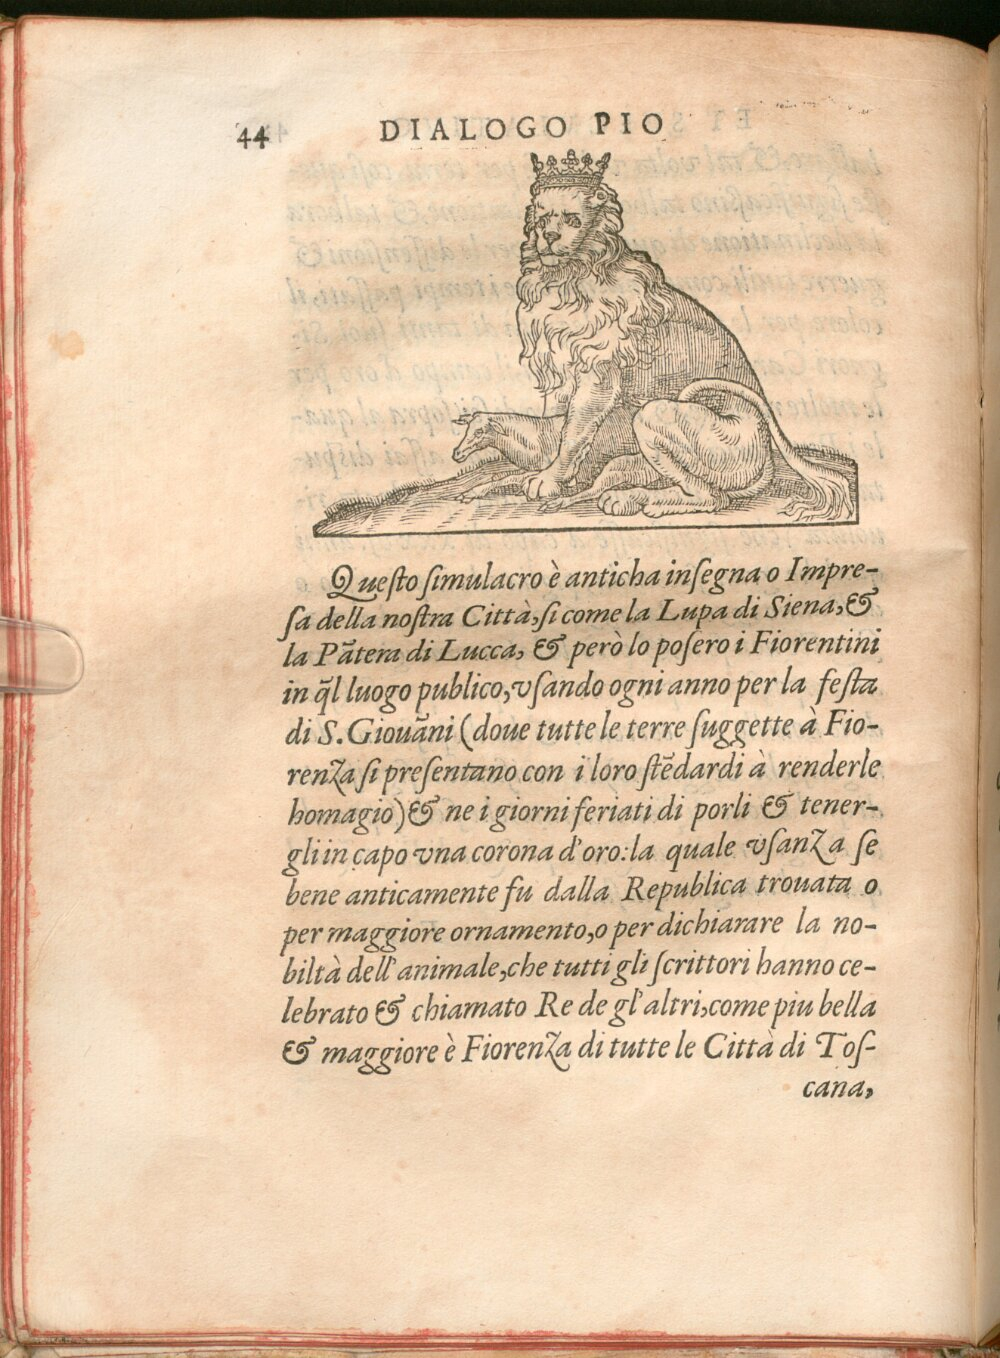 44 DIALOGO PIO
Queſto ſimulacro è anticha inſegna o Impre-
ſa della noſtra Città, ſi come la Lupa di Siena, &
la Pãtera di Lucca, & però lo poſero i Fiorentini
in q̃l luogo publico, vſando ogni anno per la feſta
di S. Giouãni (doue tutte le terre ſuggette à Fio-
renza ſi preſentano con i loro ſtẽdardi à renderle
homagio) & ne i giorni feriati di porli & tener-
gli in capo vna corona d'oro: la quale vſanza ſe
bene anticamente fu dalla Republica trouata o
per maggiore ornamento, o per dichiarare la no-
biltà dell'animale, che tutti gli ſcrittori hanno ce-
lebrato & chiamato Re de gl'altri, come piu bella
& maggiore è Fiorenza di tutte le Città di Toſ-
cana,